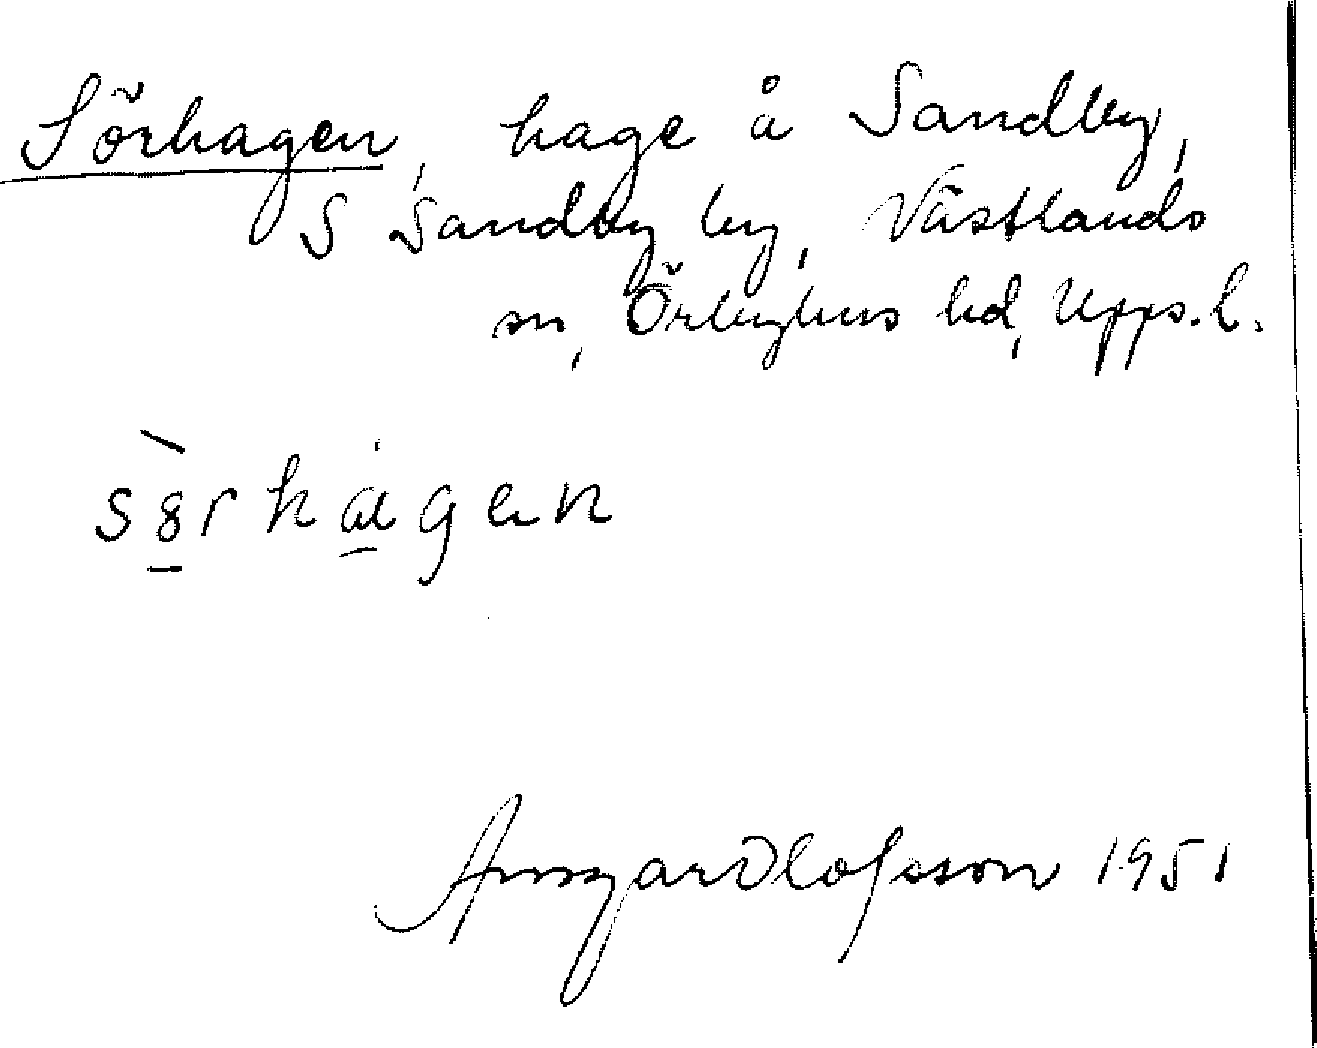 Sörhagen, hage å Sandby,
S Sandby by, Västlands
sn, Örbyhus hd, Upps. l.
sö̀rhagen
Ansgar Olofsson 1951